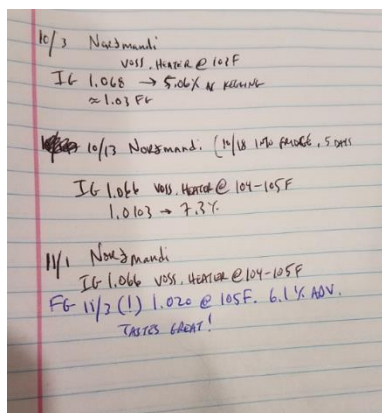 10/3 Nordmandi
VOSS. HEATER @ 102F
IG 1.068 → 5.06% IN KEGLAND
≈ 1.03 FG
10/13 Nordmandi. (10/18 INTO FRIDGE, 5 DAYS
IG 1.066 VOSS. HEATER @ 104-105F
1.0103 → 7.3%
11/1 Nordmandi
IG 1.066 VOSS. HEATER @ 104-105F
FG 11/3 (!) 1.020 @ 105F. 6.1% ABV.
TASTES GREAT!